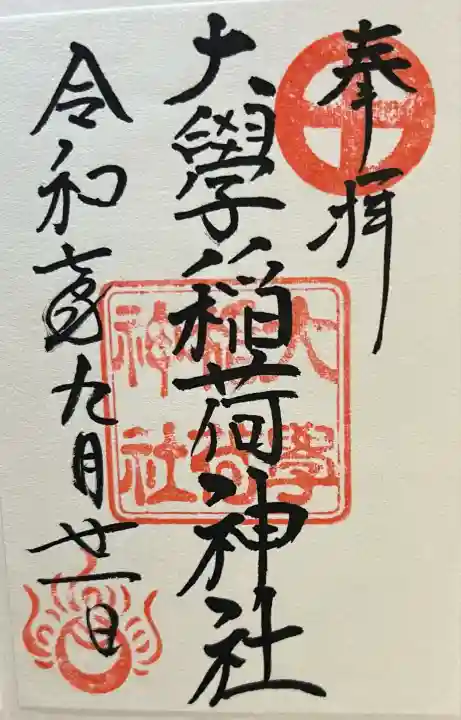 奉拝
大學稲荷神社
大學稲荷神社
令和七年九月廿一日